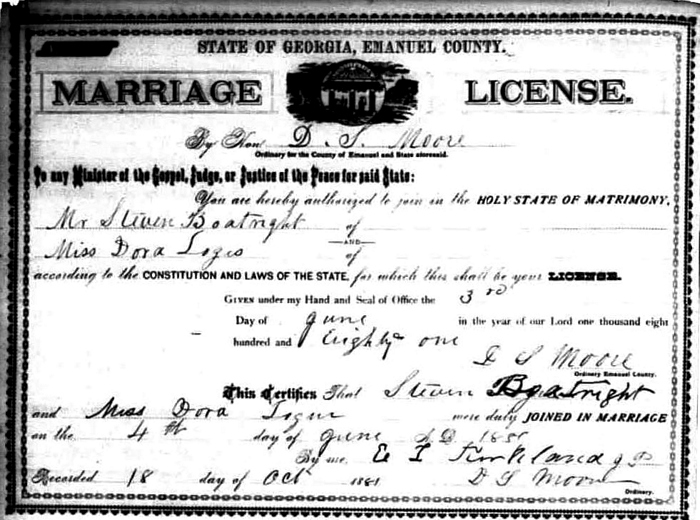 STATE OF GEORGIA, EMANUEL COUNTY.
MARRIAGE LICENSE.
By Hon D. S. Moore
Ordinary for the County of Emanuel and State aforesaid.
To any Minister of the Gospel, Judge, or Justice of the Peace for said State:
You are hereby authorized to join in the HOLY STATE OF MATRIMONY,
Mr Steven Boatright of
AND
Miss Dora of
according to the CONSTITUTION AND LAWS OF THE STATE, for which this shall be your LICENSE.
GIVEN under my Hand and Seal of Office the 3rd
Day of June in the year of our Lord one thousand eight
hundred and Eighty one
D S Moore
Ordinary Emanuel County.
This Certifies That Steven Boatright
and Miss Dora were duly JOINED IN MARRIAGE
on the 4th day of June A.D. 1881
By me, E I Kirkland
Recorded 18 day of Oct 1881 D S Moore
Ordinary.